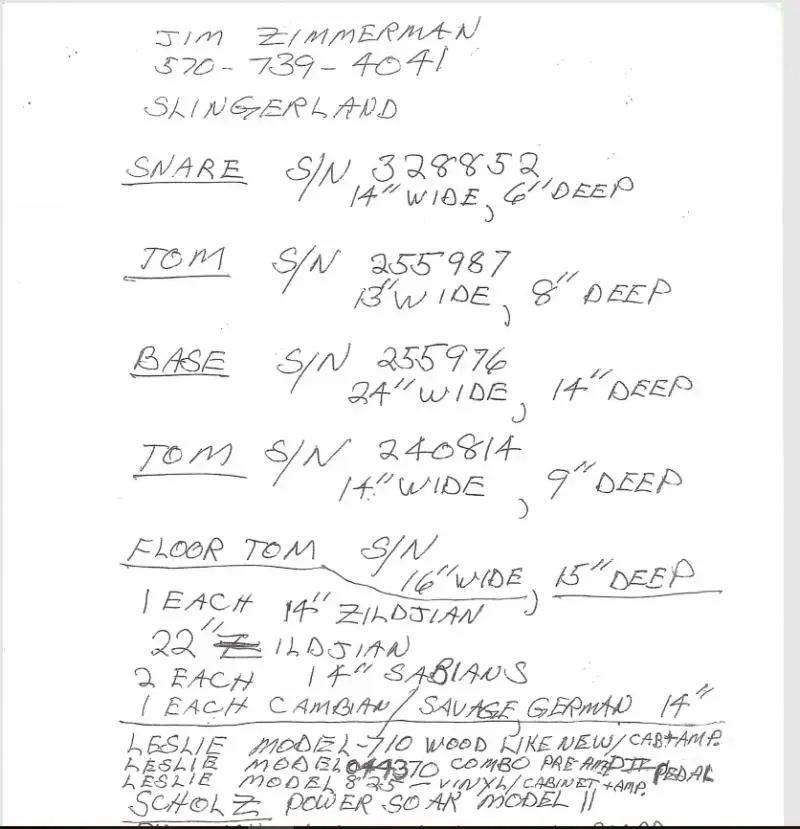 JIM ZIMMERMAN
570-739-4041
SLINGERLAND
SNARE S/N 328852
14" WIDE, 6" DEEP
TOM S/N 255987
13" WIDE, 8" DEEP
BASE S/N 255976
24" WIDE, 14" DEEP
TOM S/N 240814
14" WIDE, 9" DEEP
FLOOR TOM S/N
16" WIDE, 15" DEEP
1 EACH 14" ZILDJIAN
22" ZILDJIAN
2 EACH 14" SABIANS
1 EACH CAMBIAN/SAVAGE GERMAN 14"
LESLIE MODEL-710 WOOD LIKE NEW/CAB+AMP.
LESLIE MODEL COMBO PRE-AMP II PEDAL
LESLIE MODEL 825-VINYL/CABINET+AMP.
SCHOLZ POWER SOAK MODEL II